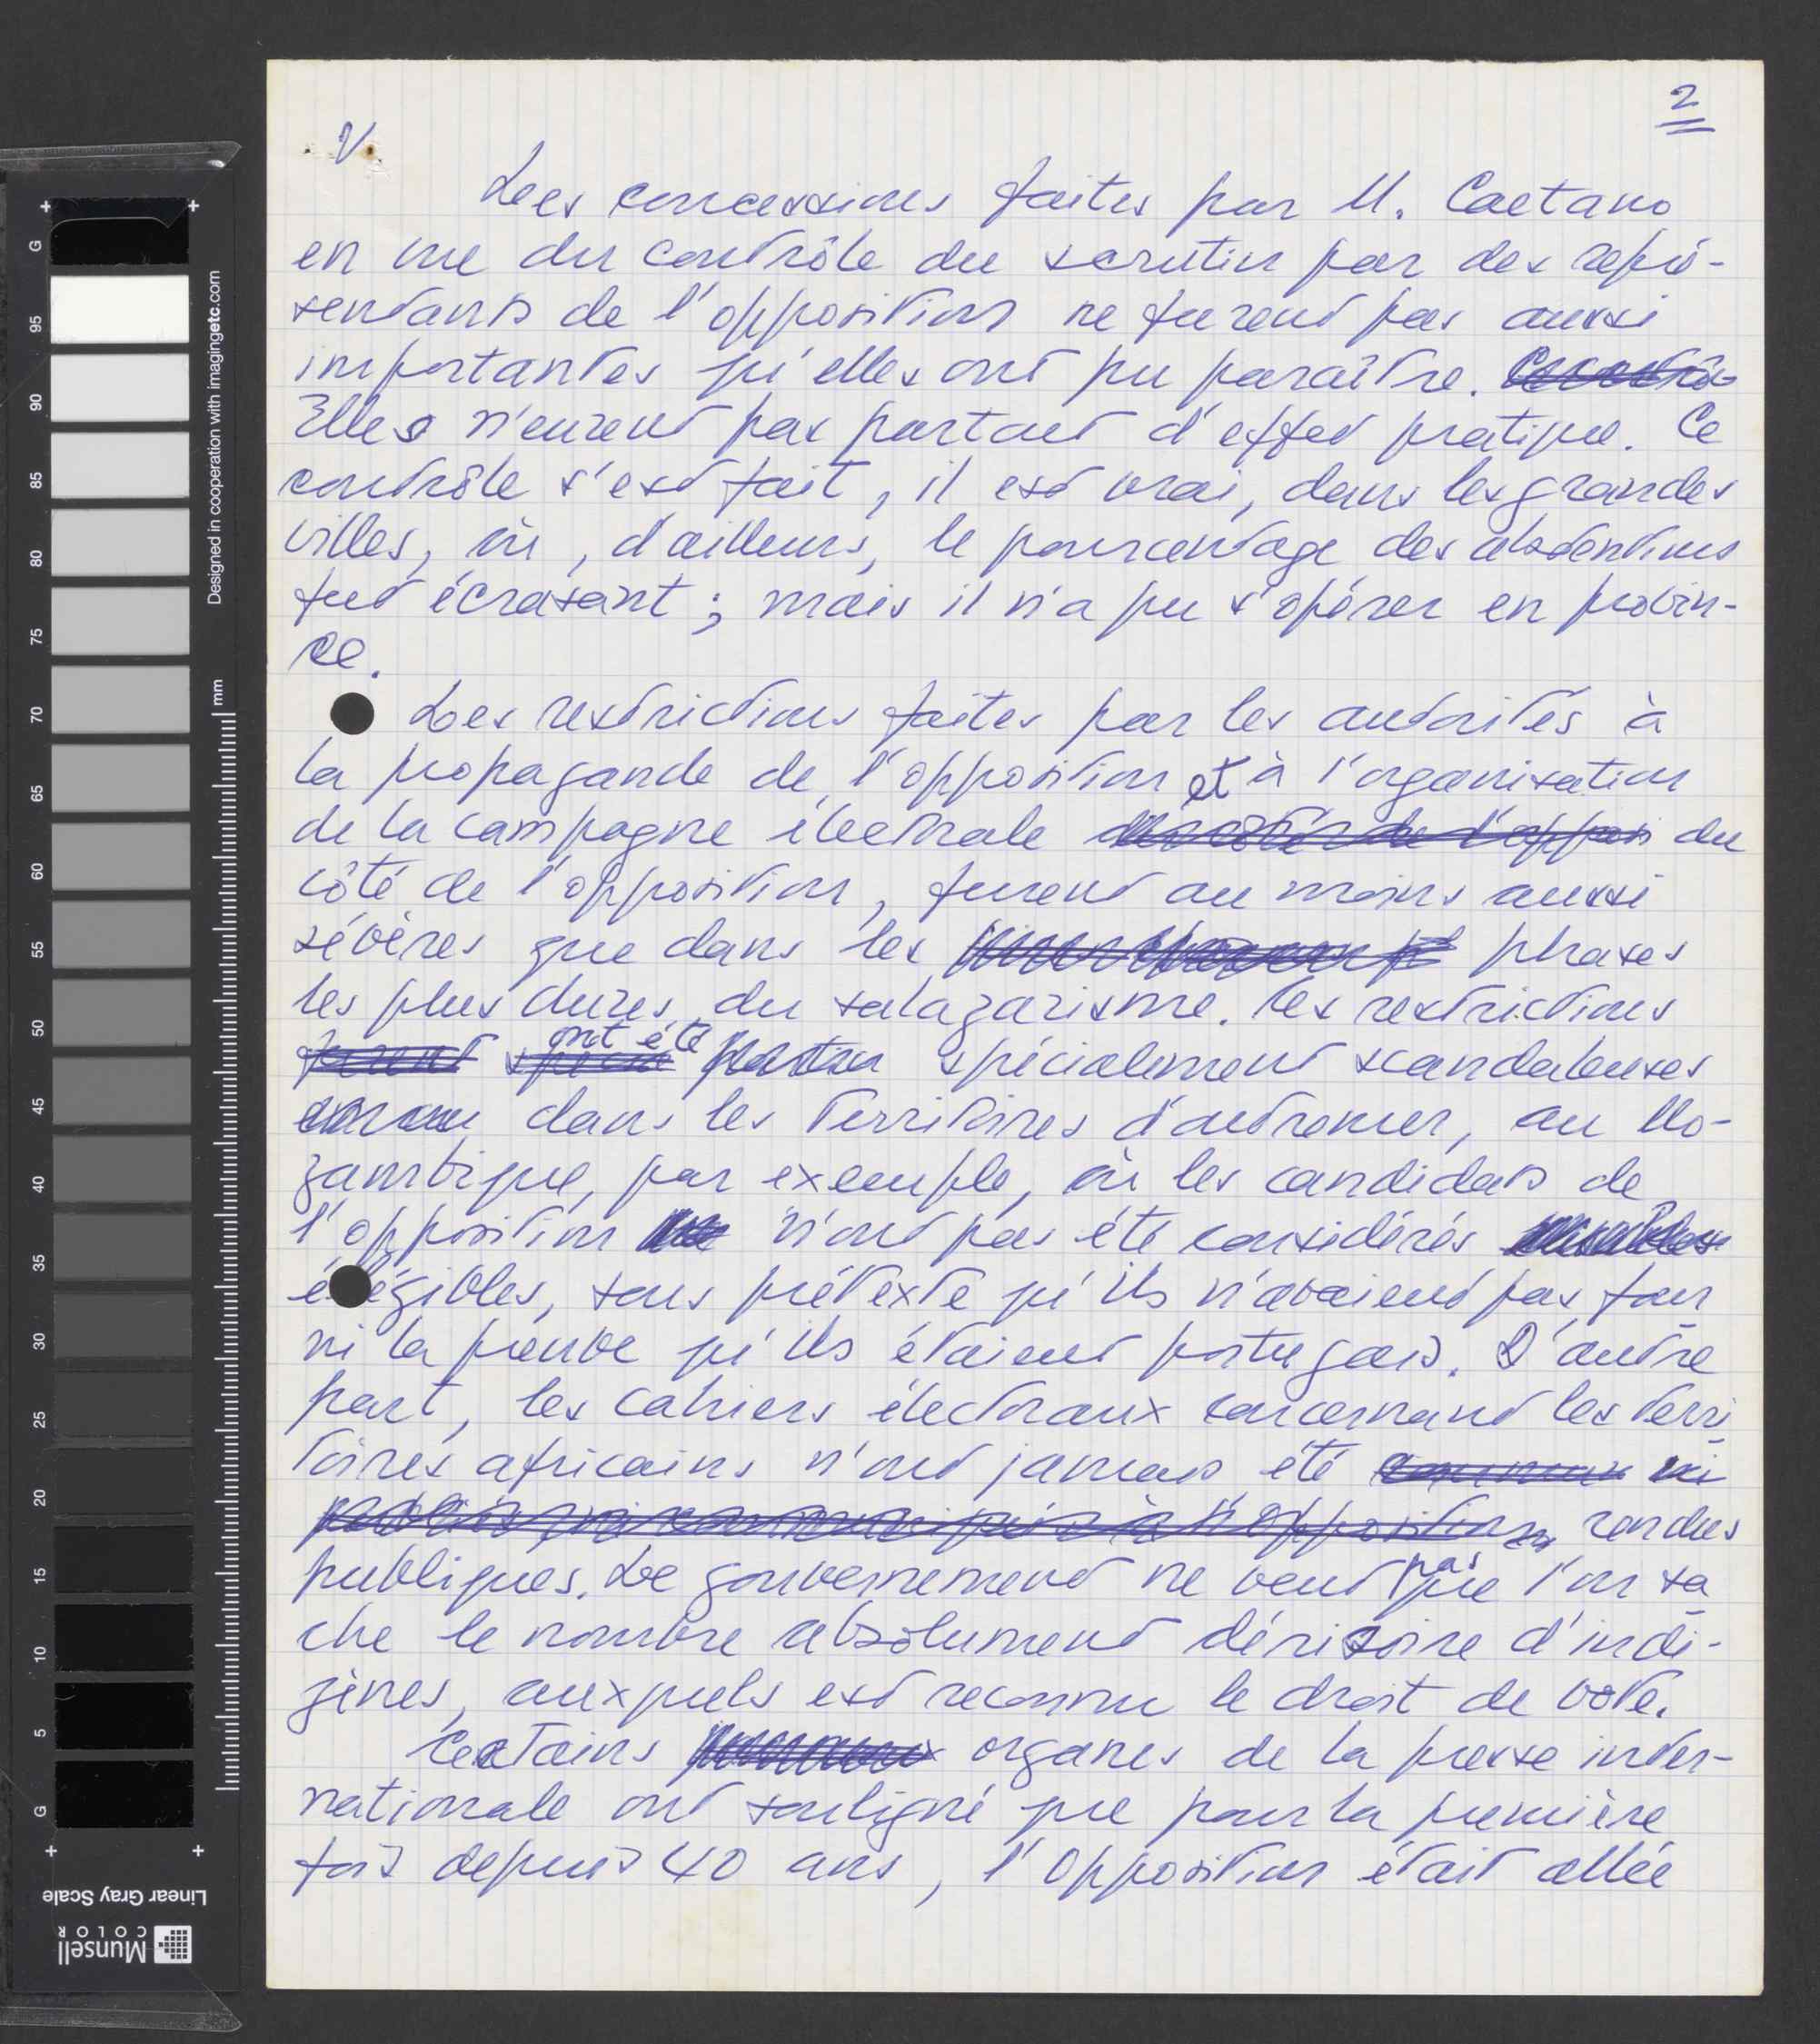 2
V.
Les concessions faites par M. Caetano
en vue du contrôle du scrutin par des repré-
sentants de l'opposition ne furent pas aussi
importantes qu'elles ont pu paraître.
Elles n'eurent pas partout d'effet pratique. Ce
contrôle s'est fait, il est vrai, dans les grandes
villes, où, d'ailleurs, le pourcentage des abstentions
fut écrasant ; mais il n'a pu s'opérer en provin-
ce.
Les restrictions faites par les autorités à
la propagande de l'opposition et à l'organisation
de la campagne électorale du côté de l'oppos du
côté de l'opposition, furent au moins aussi
sévères que dans les phases
les plus dures du salazarisme. Les restrictions
furent ont été spécialement scandaleuses
dans les territoires d'outremer, au Mo-
zambique, par exemple, où les candidats de
l'opposition n'ont pas été considérés
éligibles, sous prétexte qu'ils n'avaient pas four
ni la preuve qu'ils étaient portugais. D'autre
part, les cahiers électoraux concernant les terri
toires africains n'ont jamais été ni
publiés, ni communiqués à l'opposition rendus
publiques. Le gouvernement ne veut pas que l'on sa
che le nombre absolument dérisoire d'indi-
gènes, auxquels est reconnu le droit de vote.
Certains organes de la presse inter-
nationale ont souligné que pour la première
fois depuis 40 ans, l'Opposition était allée
Designed in cooperation with imagingetc.com
mm
G
95
90
85
80
75
70
65
60
55
50
45
40
35
30
25
20
15
10
5
G
Linear Gray Scale
Munsell
COLOR